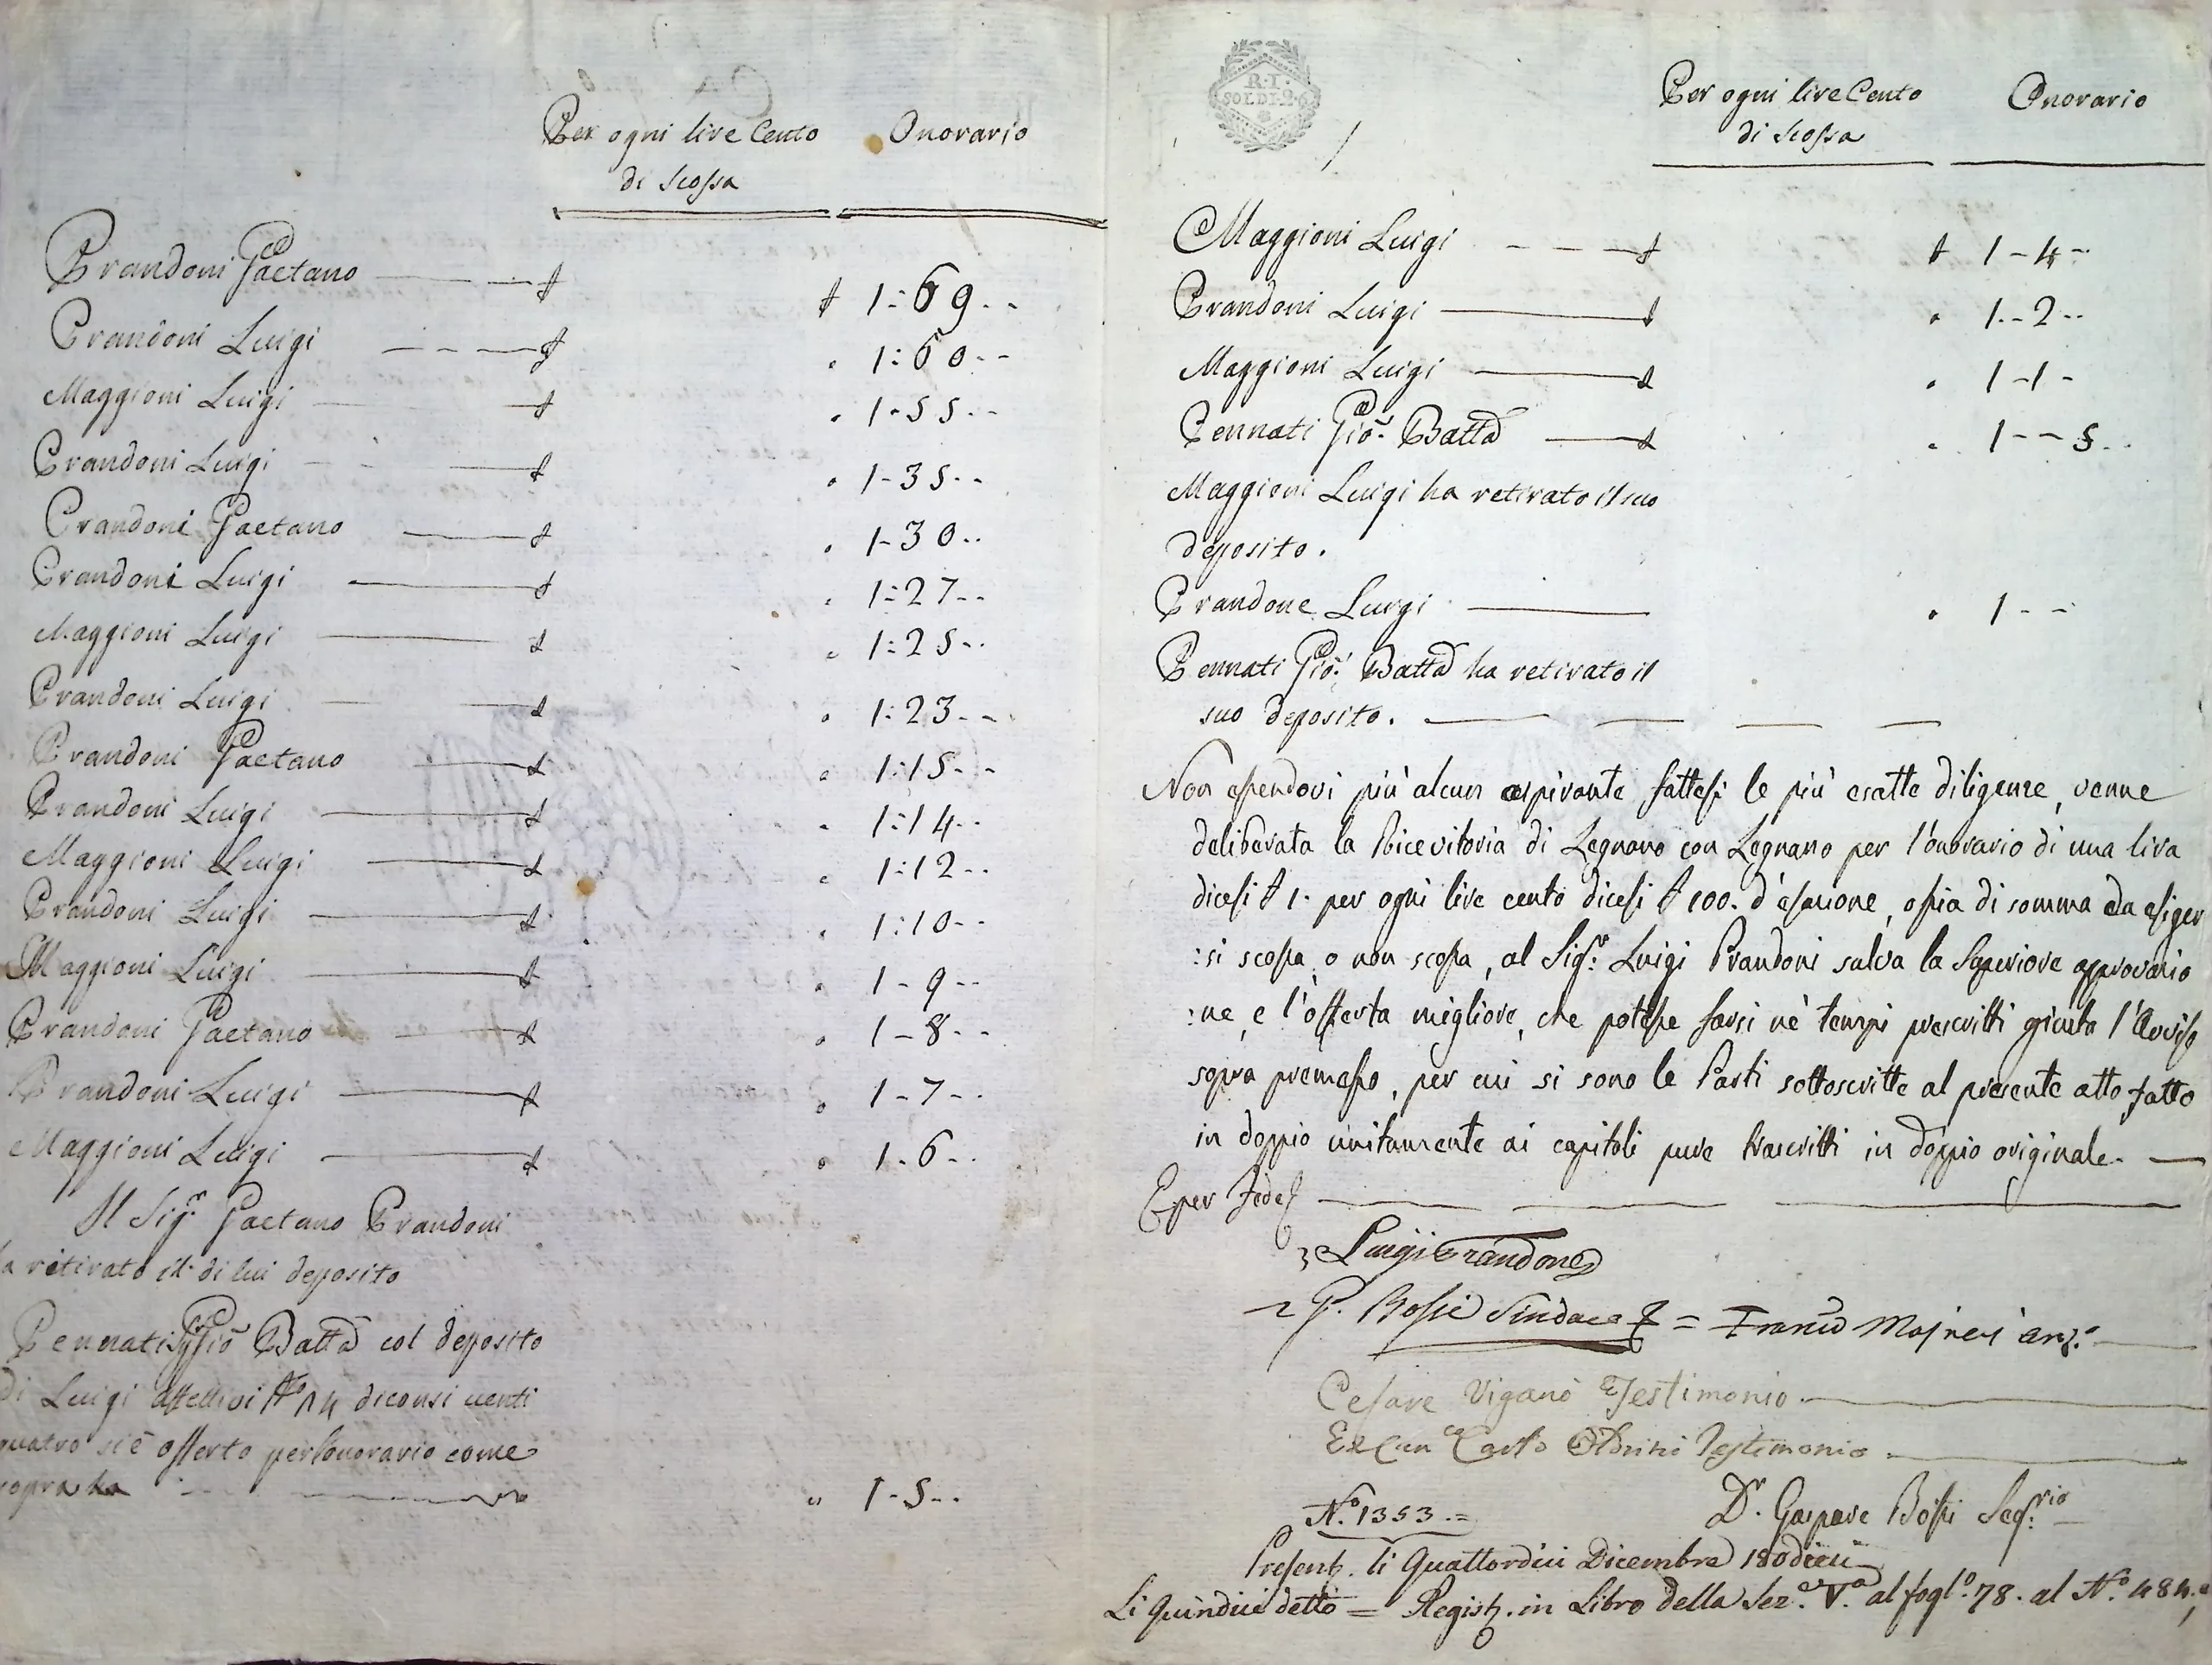 Per ogni lire Cento Onorario
di Scossa
Prandoni Gaetano £ £ 1:69..
Prandoni Luigi £ " 1:60..
Maggioni Luigi £ " 1-55..
Prandoni Luigi £ " 1-35..
Prandoni Gaetano £ " 1-30..
Prandoni Luigi £ " 1:27..
Maggioni Luigi £ " 1:25..
Prandoni Luigi £ " 1:23..
Prandoni Gaetano £ " 1:15..
Prandoni Luigi £ " 1:14..
Maggioni Luigi £ " 1:12..
Prandoni Luigi £ " 1:10..
Maggioni Luigi £ " 1-9..
Prandoni Gaetano £ " 1-8..
Prandoni Luigi £ " 1-7..
Maggioni Luigi £ " 1-6..
Il Sig.r Gaetano Prandoni
ha retirato il di lui deposito
Pennati Gio Batta col deposito
di Luigi effettivi N.o 24 diconsi venti
quatro si è offerto per l'onorario come
sopra " 1-5..
R.I.
SOLDI.26
Per ogni lire Cento Onorario
di Scossa
Maggioni Luigi £ £ 1-4-
Prandoni Luigi £ " 1.-2..
Maggioni Luigi £ " 1-1-
Pennati Gio. Batta £ " 1--5..
Maggioni Luigi ha retirato il suo
deposito.
Prandone Luigi " 1--
Pennati Gio. Batta ha retirato il
suo deposito.
Non essendovi più alcun aspirante fattesi le più esatte diligenze, venne
deliberata la Ricevitoria di Legnano con Legnano per l'onorario di una lira
dicesi £ 1. per ogni lire cento dicesi £ 100. d'esazione, ossia di somma da esiger
:si scossa, o non scossa, al Sig.r Luigi Prandoni salva la Superiore approvazio
:ne, e l'offerta migliore, che potesse farsi nè tempi prescritti giusta l'Avviso
sopra premesso, per cui si sono le Parti sottoscritte al presente atto fatto
in doppio unitamente ai capitoli pure trascritti in doppio originale.
E per fede
Luigi Prandone
G. Bossi Sindaco = Franco Majneri anz.o
Cesare Viganò Testimonio
Carlo Testimonio
N.o 1353.= D.r Gaspare Bossi Seg.rio
Present. li Quattordici Dicembre 180dieci
Li Quindici detto = Regist. in Libro della Sez.e V.a al fogl.o 78. al N.o 484.